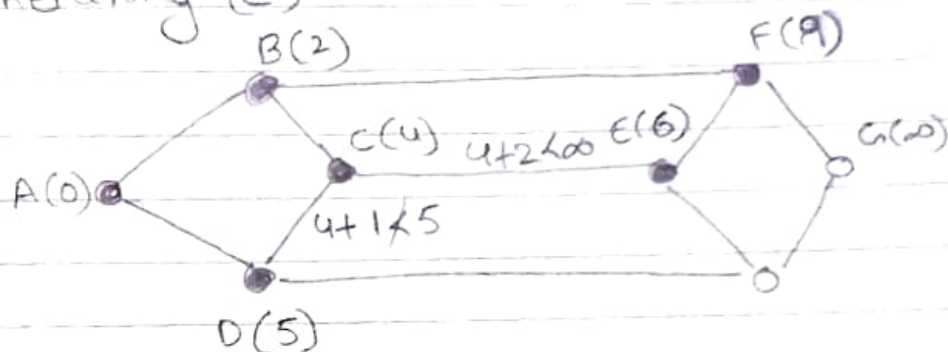 B(2)
F(9)
C(4)
4+2<∞
E(6)
G(∞)
A(0)
4+1≮5
D(5)